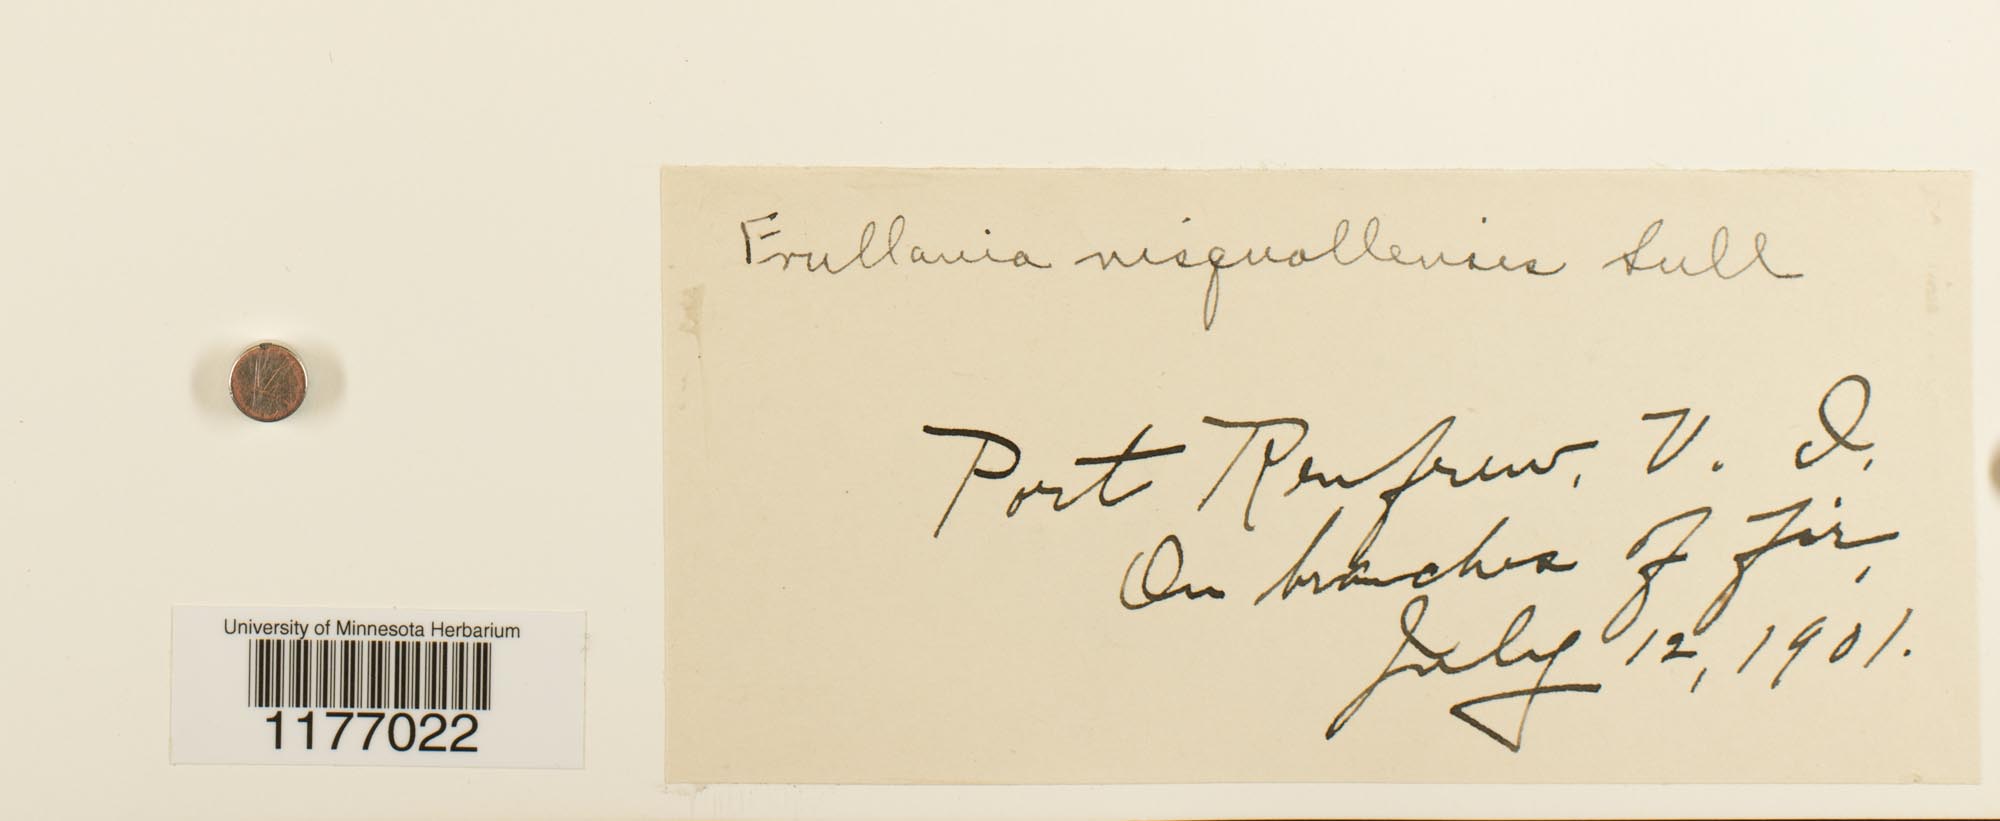 Frullania nisquallensis Sull
Port Renfrew, V. I.
On branches of fir,
July 12, 1901.
University of Minnesota Herbarium
1177022